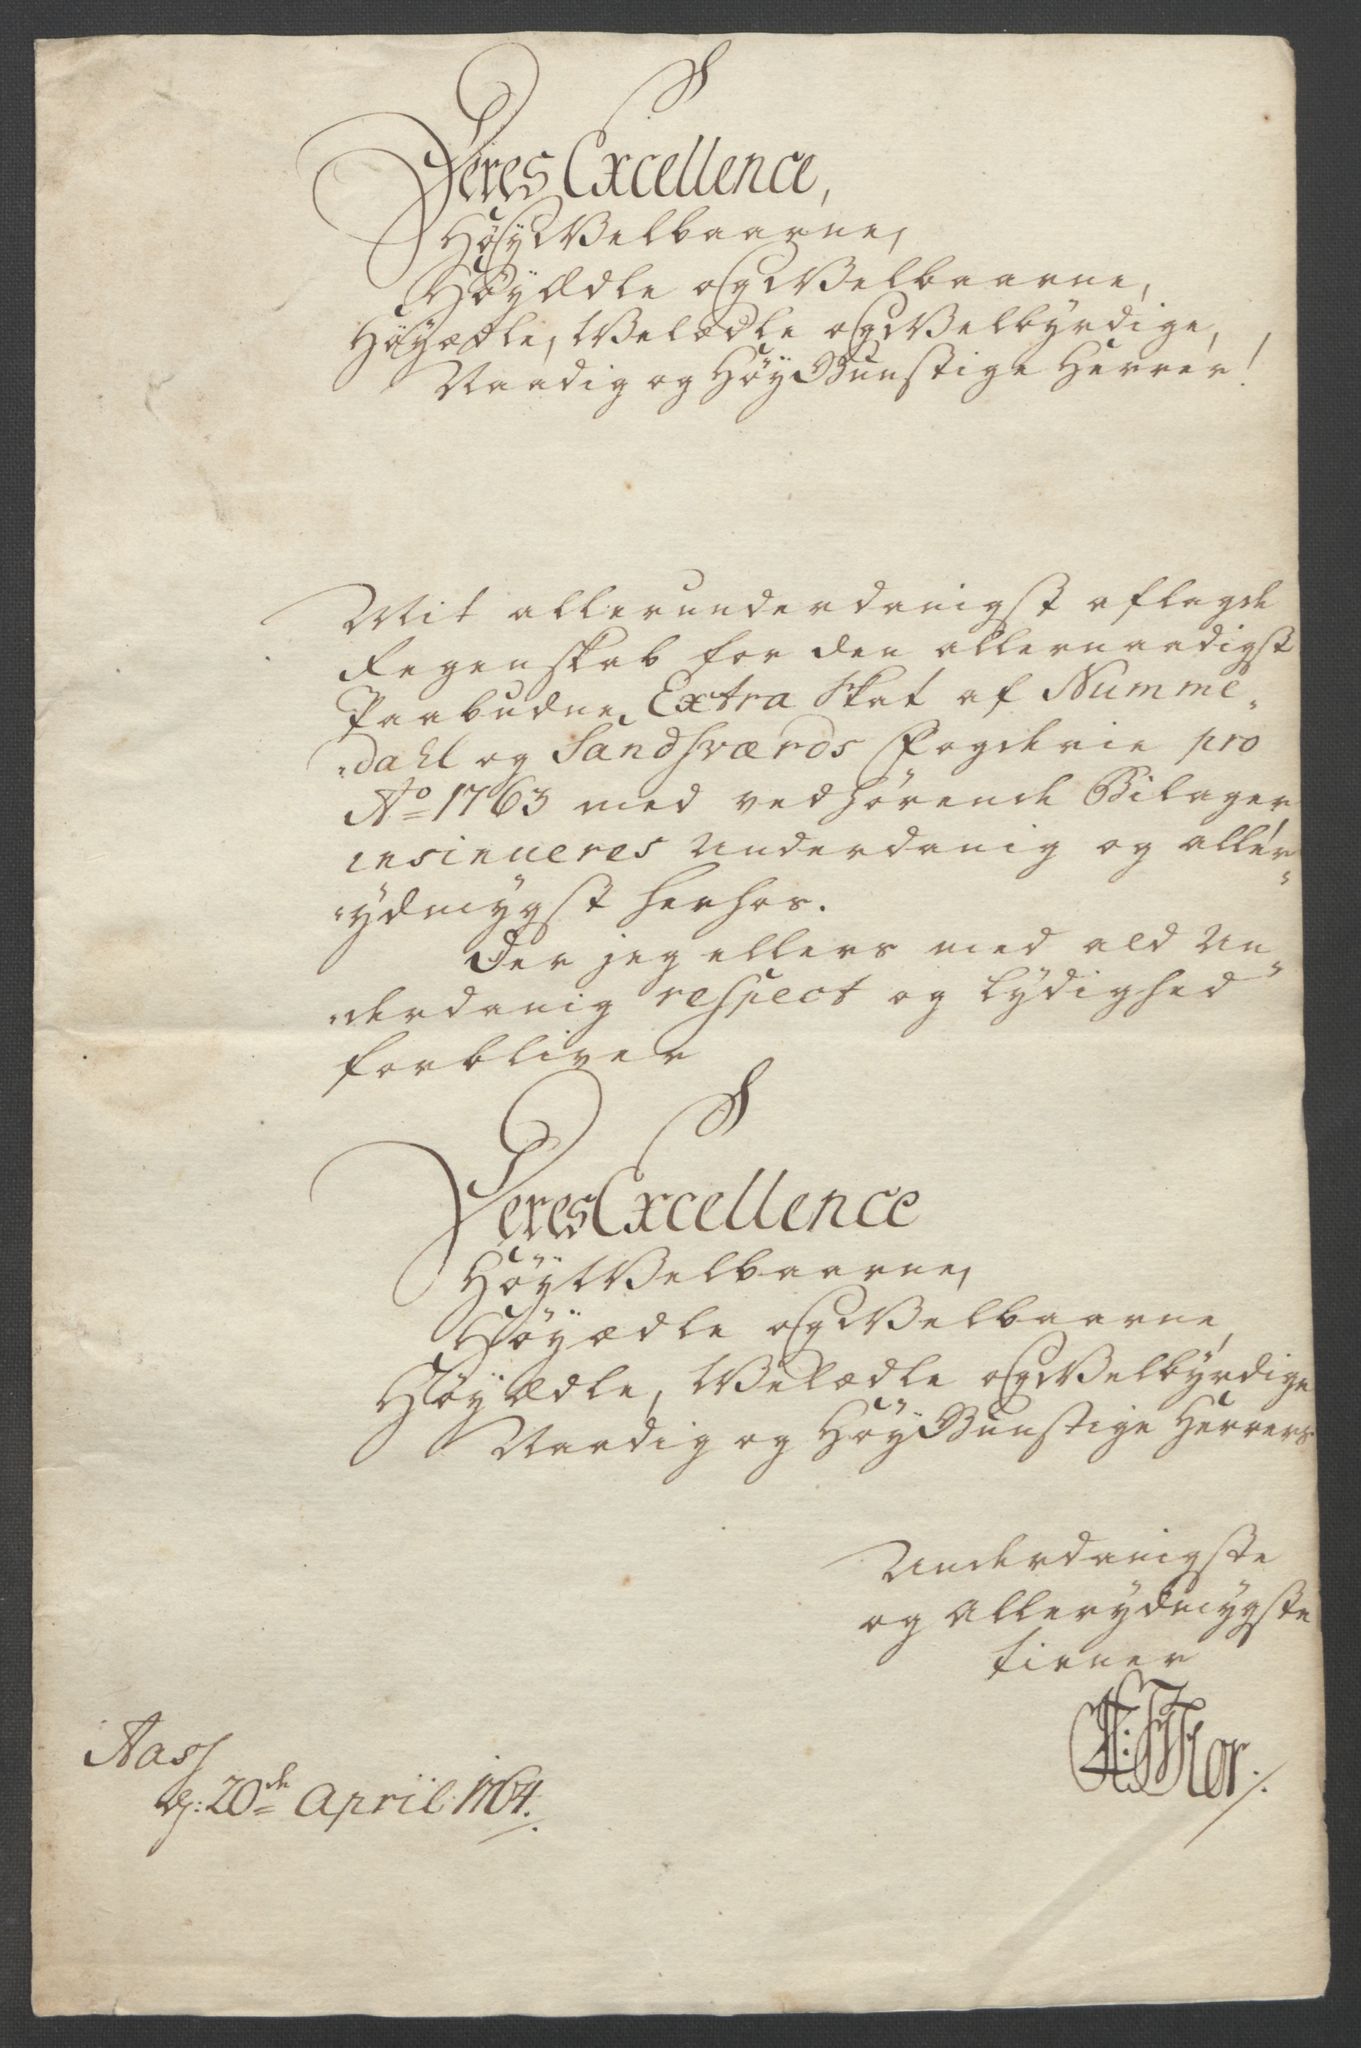 Deres Excellence,
HöyWelbaarne,
HöyÆdle og Welbaarne,
Höyædle, Welædle og Welbyrdige,
Naadig og HöyGunstige Herrer!
Mit allerunderdanigst aflagde
Regenskab for den allernaadigst
Paabudne Extra Skat af Numme„
„dahl og Sandsværds Fogderie pro
Ao 1763 med vedhørende Bilager
insinueres underdanig og aller„
„ydmygst herhos.
Der jeg ellers med ald Un„
„derdanig respect og Lydighed
forbliver
Deres Excellence
HöyWelbaarne,
Höyædle og Welbaarne,
HöyÆdle, Welædle og Welbyrdige
Naadig og HöyGunstige Herrers
Underdanigste
og Allerydmygste
tienner
Flor.
Aas
d: 20de April: 1764.